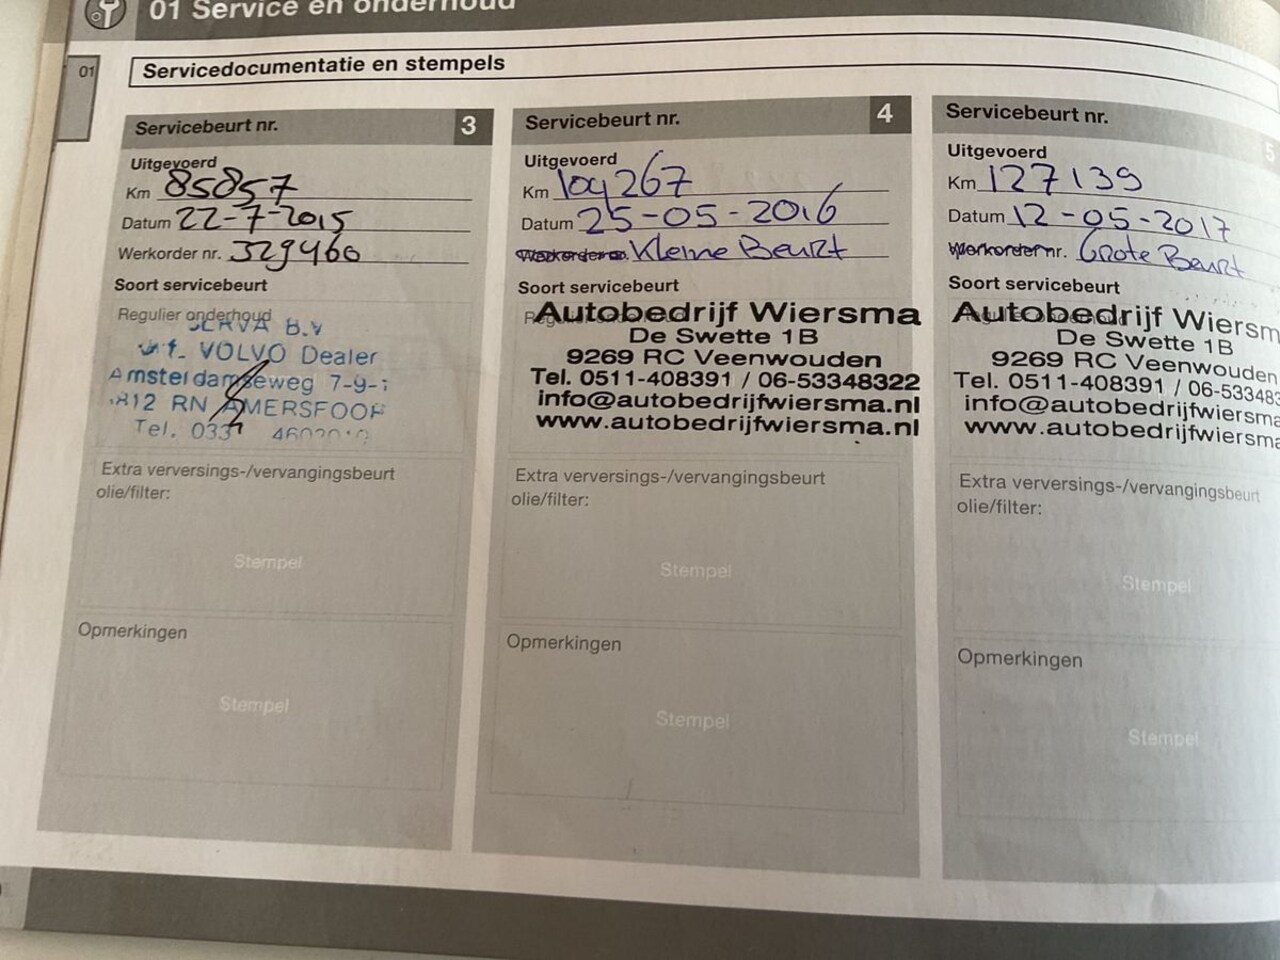 01 Service en onderhoud
01
Servicedocumentatie en stempels
Servicebeurt nr. 3
Uitgevoerd
Km 85857
Datum 22-7-2015
Werkorder nr. 329460
Soort servicebeurt
Regulier onderhoud
B.V
VOLVO Dealer
Amsterdamseweg 7-9-
812 RN AMERSFOOR
Tel. 033
Extra verversings-/vervangingsbeurt
olie/filter:
Stempel
Opmerkingen
Stempel
Servicebeurt nr. 4
Uitgevoerd
Km 109267
Datum 25-05-2016
Kleine Beurt
Soort servicebeurt
Autobedrijf Wiersma
De Swette 1B
9269 RC Veenwouden
Tel. 0511-408391 / 06-53348322
info@autobedrijfwiersma.nl
www.autobedrijfwiersma.nl
Extra verversings-/vervangingsbeurt
olie/filter:
Stempel
Opmerkingen
Stempel
Servicebeurt nr. 5
Uitgevoerd
Km 127139
Datum 12-05-2017
Werkorder nr. Grote Beurt
Soort servicebeurt
Autobedrijf Wiersm
De Swette 1B
9269 RC Veenwouden
Tel. 0511-408391 / 06-533483
info@autobedrijfwiersma
www.autobedrijfwiersma
Extra verversings-/vervangingsbeurt
olie/filter:
Stempel
Opmerkingen
Stempel